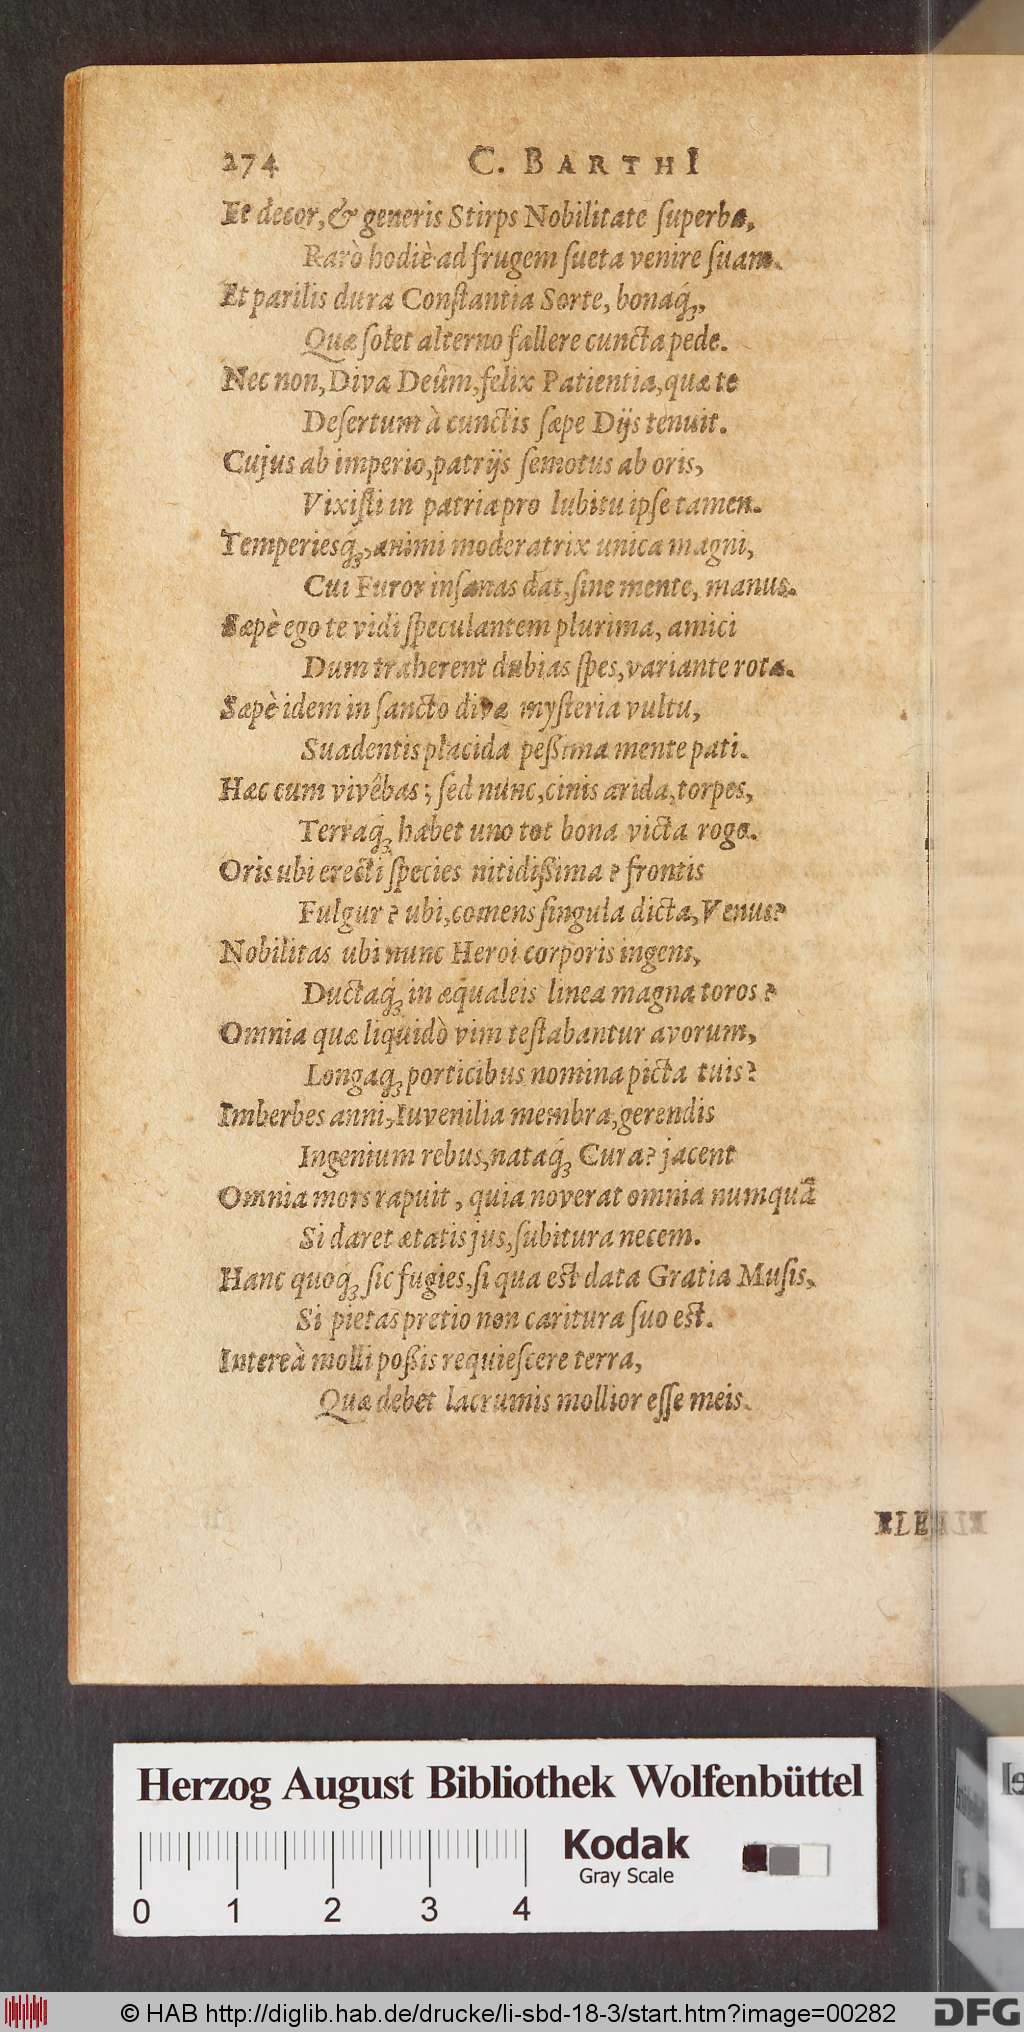 274 C. BARTHI
Et decor, & generis Stirps Nobilitate ſuperba,
Rarò hodiè ad frugem ſueta venire ſuam.
Et parilis dura Conſtantia Sorte, bonaq́;,
Quæ ſolet alterno fallere cuncta pede.
Nec non, Diva Deûm, felix Patientia, quæ te
Deſertum à cunctis ſæpe Dijs tenuit.
Cujus ab imperio, patrijs ſemotus ab oris,
Vixiſti in patria pro lubitu ipſe tamen.
Temperiesq́;, animi moderatrix unica magni,
Cui Furor inſanas dat, ſine mente, manus.
Sæpè ego te vidi ſpeculantem plurima, amici
Dum traherent dubias ſpes, variante rota.
Sæpè idem in ſancto divæ myſteria vultu,
Suadentis placida peßima mente pati.
Hæc cum vivêbas; ſed nunc, cinis arida, torpes,
Terraq́; habet uno tot bona victa rogo.
Oris ubi erecti ſpecies nitidißima? frontis
Fulgur? ubi, comens ſingula dicta, Venus?
Nobilitas ubi nunc Heroi corporis ingens,
Ductaq́; in æqualeis linea magna toros?
Omnia quæ liquidò vim teſtabantur avorum,
Longaq; porticibus nomina picta tuis?
Imberbes anni, Iuvenilia membra, gerendis
Ingenium rebus, nataq́; Cura? jacent
Omnia mors rapuit, quia noverat omnia numquã
Si daret ætatis jus, ſubitura necem.
Hanc quoq́; ſic fugies, ſi qua eſt data Gratia Muſis,
Si pietas pretio non caritura ſuo eſt.
Intereà molli poßis requieſcere terra,
Quæ debet lacrumis mollior eſſe meis.
Herzog August Bibliothek Wolfenbüttel
Kodak
Gray Scale
0 1 2 3 4
© HAB http://diglib.hab.de/drucke/li-sbd-18-3/start.htm?image=00282
DFG